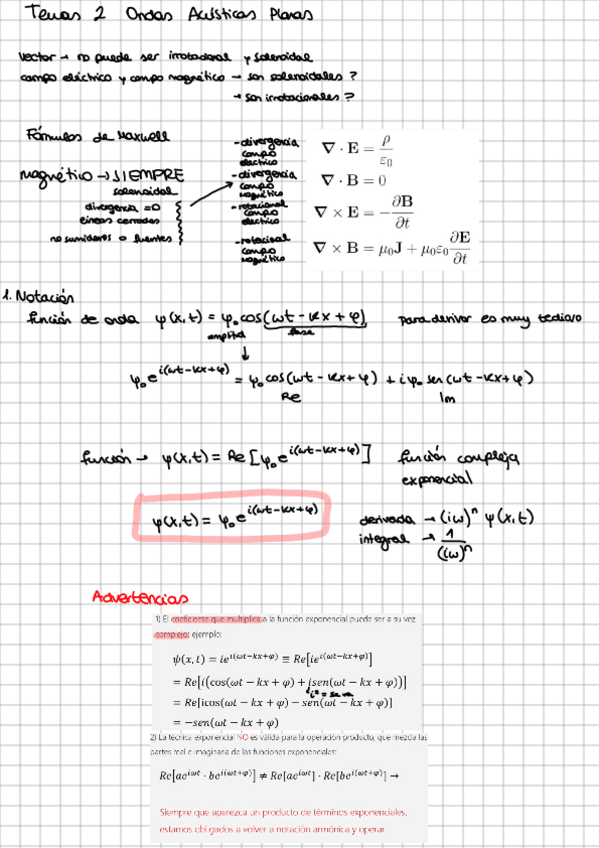 Temas 2 Ondas Acústicas Planas
Vector → no puede ser irrotacional y solenoidal
campo eléctrico y campo magnético → son solenoidales ?
→ son irrotacionales ?
Fórmulas de Maxwell
magnético → SIEMPRE
solenoidal
divergencia = 0
líneas cerradas
no sumideros o fuentes
- divergencia campo eléctrico
∇ · E = ρ/ε₀
- divergencia campo magnético
∇ · B = 0
- rotacional campo eléctrico
∇ × E = −∂B/∂t
- rotacional campo magnético
∇ × B = μ₀J + μ₀ε₀ ∂E/∂t
1. Notación
función de onda ψ(x,t) = ψ₀ cos(ωt − kx + φ) para derivar es muy tedioso
amplitud fase
ψ₀ e^{i(ωt−kx+φ)} = ψ₀ cos(ωt − kx + φ) + i ψ₀ sen(ωt − kx + φ)
Re Im
función → ψ(x,t) = Re[ψ₀ e^{i(ωt−kx+φ)}] función compleja
exponencial
ψ(x,t) = ψ₀ e^{i(ωt−kx+φ)} derivada → (iω)ⁿ ψ(x,t)
integral → 1/(iω)ⁿ
Advertencias
1) El coeficiente que multiplica a la función exponencial puede ser a su vez
complejo; ejemplo:
ψ(x,t) = ie^{i(ωt−kx+φ)} ≡ Re[ie^{i(ωt−kx+φ)}]
= Re[i(cos(ωt − kx + φ) + isen(ωt − kx + φ))]
= Re[icos(ωt − kx + φ) − sen(ωt − kx + φ)]
= −sen(ωt − kx + φ)
2) La técnica exponencial NO es válida para la operación producto, que mezcla las
partes real e imaginaria de las funciones exponenciales:
Re[ae^{iωt} · be^{i(ωt+φ)}] ≠ Re[ae^{iωt}] · Re[be^{i(ωt+φ)}] →
Siempre que aparezca un producto de términos exponenciales,
estamos obligados a volver a notación armónica y operar.